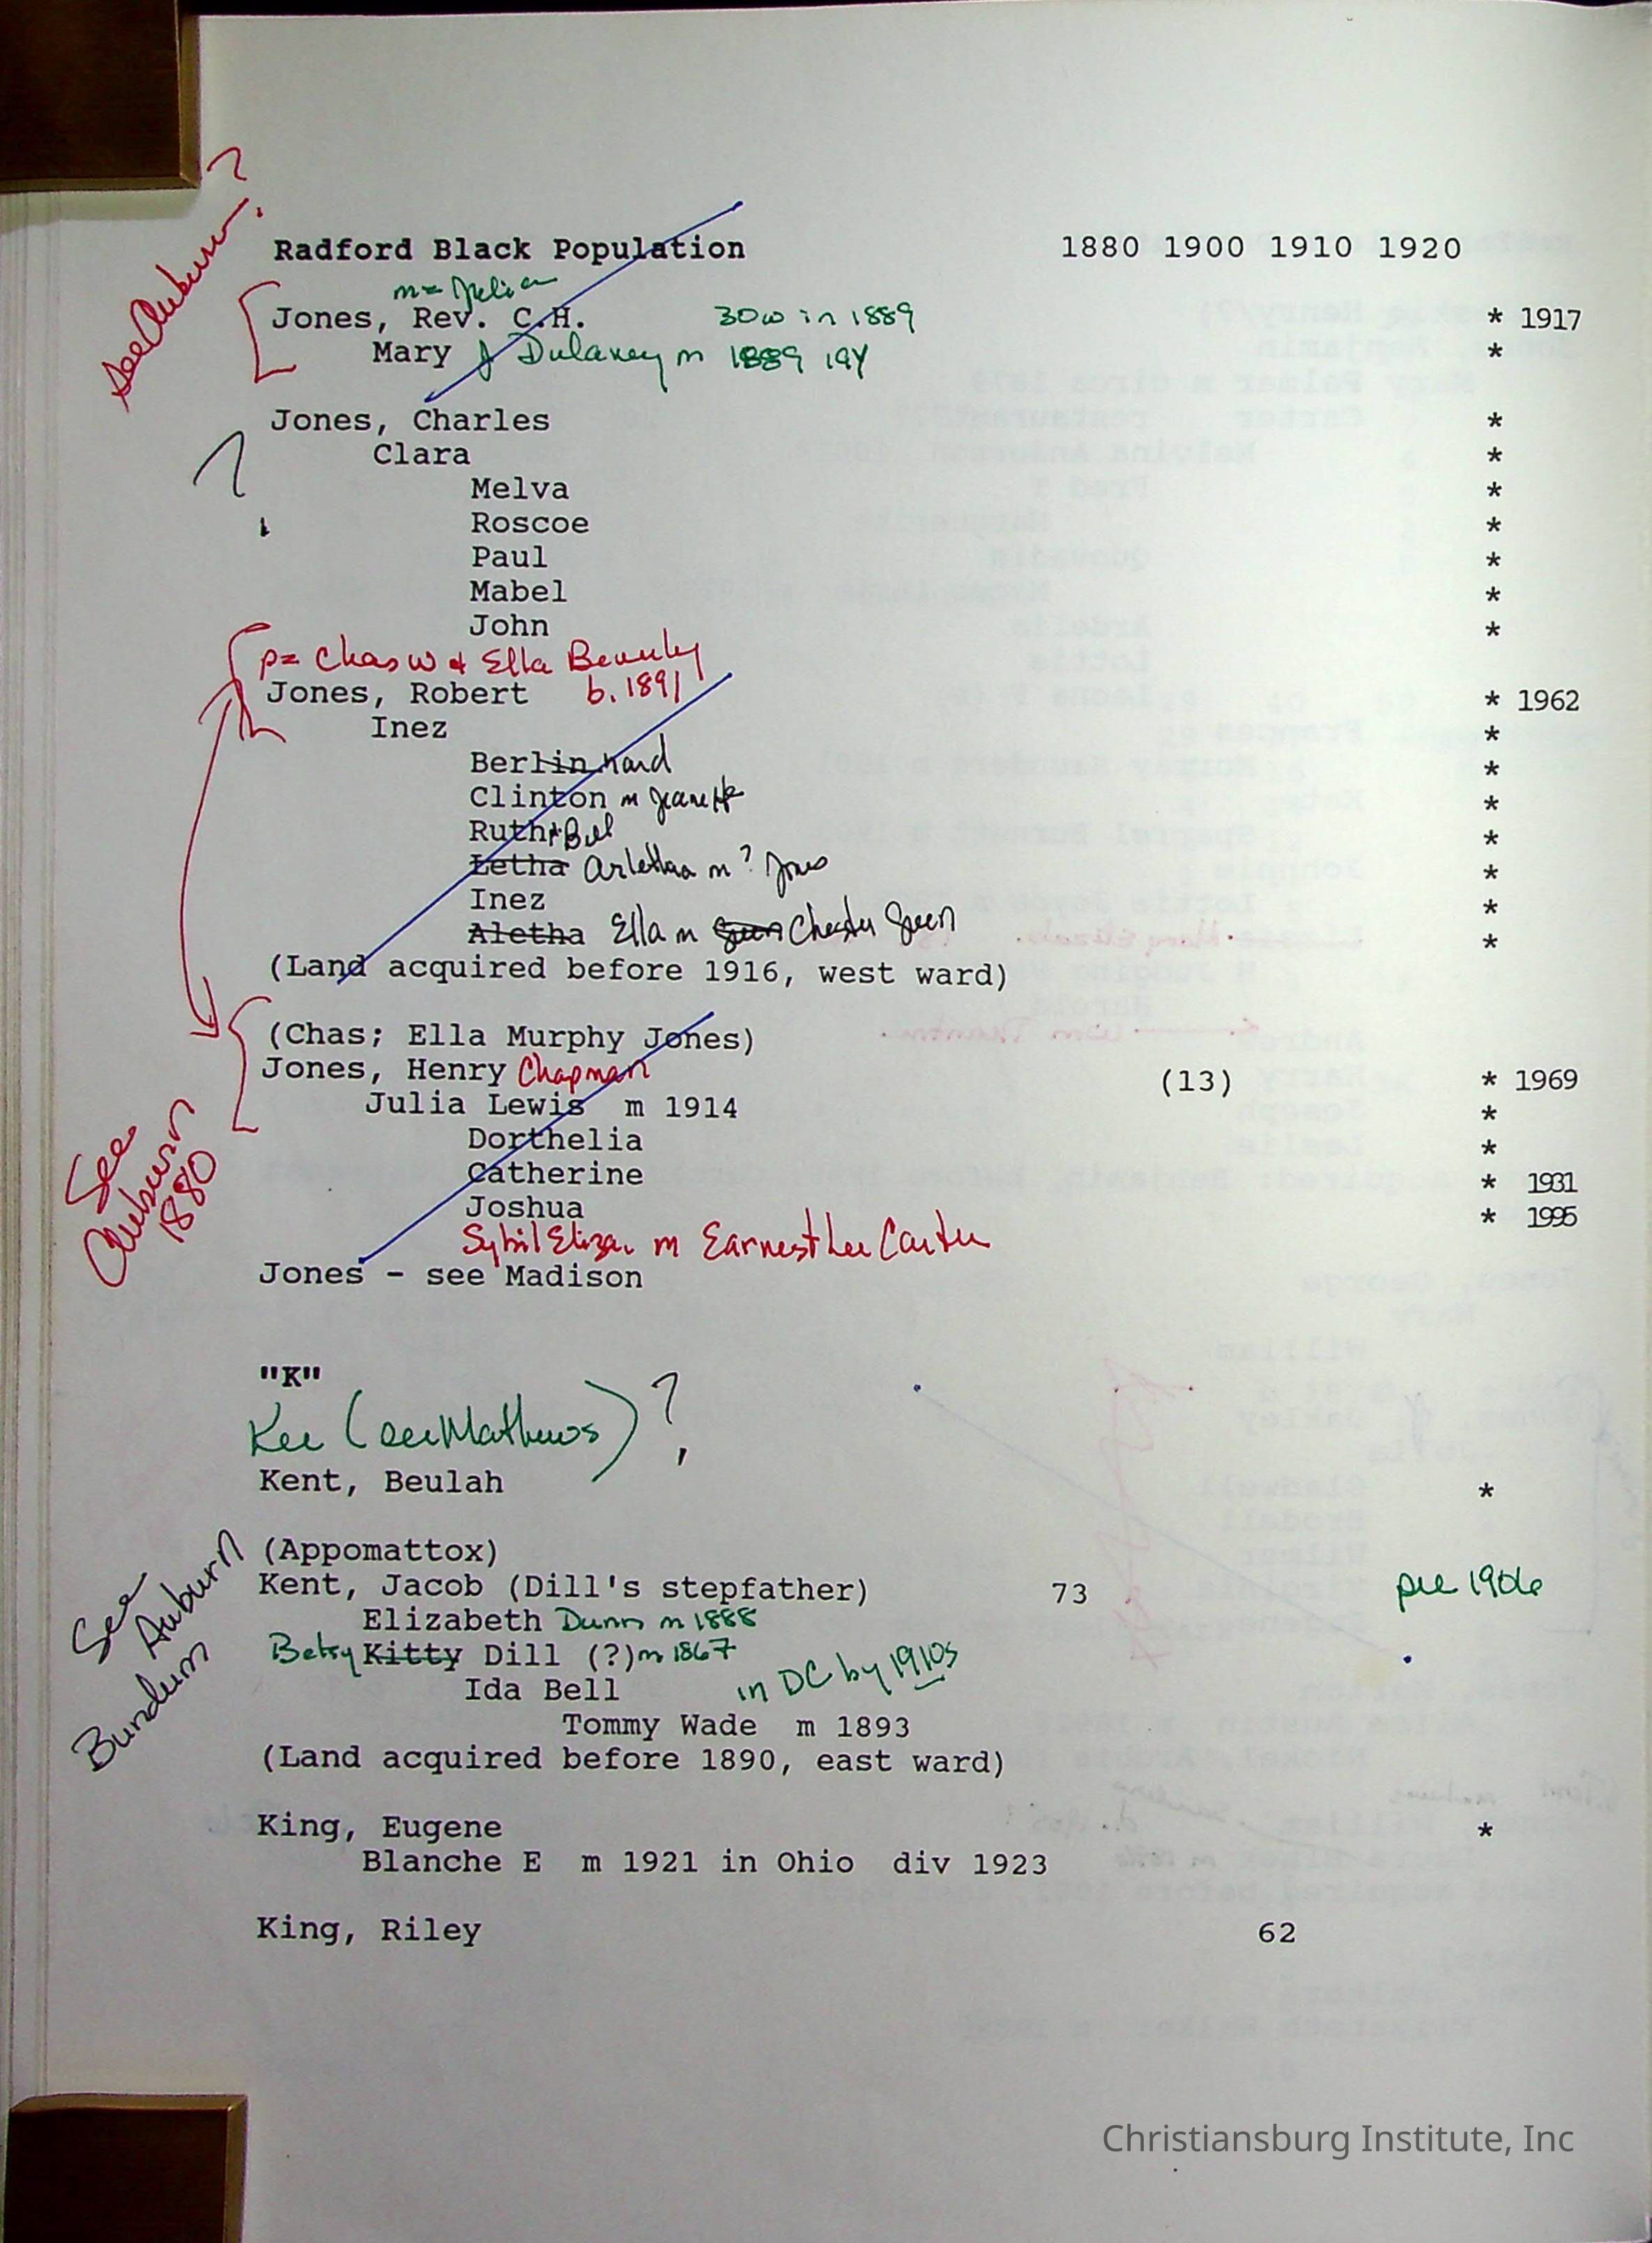 see Auburn?
Radford Black Population 1880 1900 1910 1920
m= Julia
Jones, Rev. C.H. 30w in 1889 * 1917
Mary J Dulaney m 1889 19Y *
Jones, Charles *
?
Clara *
Melva *
Roscoe *
Paul *
Mabel *
John *
p= Chas W & Ella
Jones, Robert b. 1891 * 1962
Inez *
Berlin nard *
Clinton m Jeanette *
Ruth *
Letha Arletha m ? Jones *
Inez *
Aletha Ella m Green Chester Green *
(Land acquired before 1916, west ward)
(Chas; Ella Murphy Jones)
Jones, Henry Chapman (13) * 1969
Julia Lewis m 1914 *
Dorthelia *
Catherine * 1931
Joshua * 1995
See Auburn 1880
Sybil Eliza. m Earnest Lee Carter
Jones - see Madison
"K"
Kee (see Mathews) ?
Kent, Beulah *
(Appomattox)
Kent, Jacob (Dill's stepfather) 73 pre 1906
See Auburn Bundum
Elizabeth Dunn m 1888
Betsy Kitty Dill (?) m 1867
Ida Bell in DC by 1910s
Tommy Wade m 1893
(Land acquired before 1890, east ward)
King, Eugene *
Blanche E m 1921 in Ohio div 1923
King, Riley 62
Christiansburg Institute, Inc